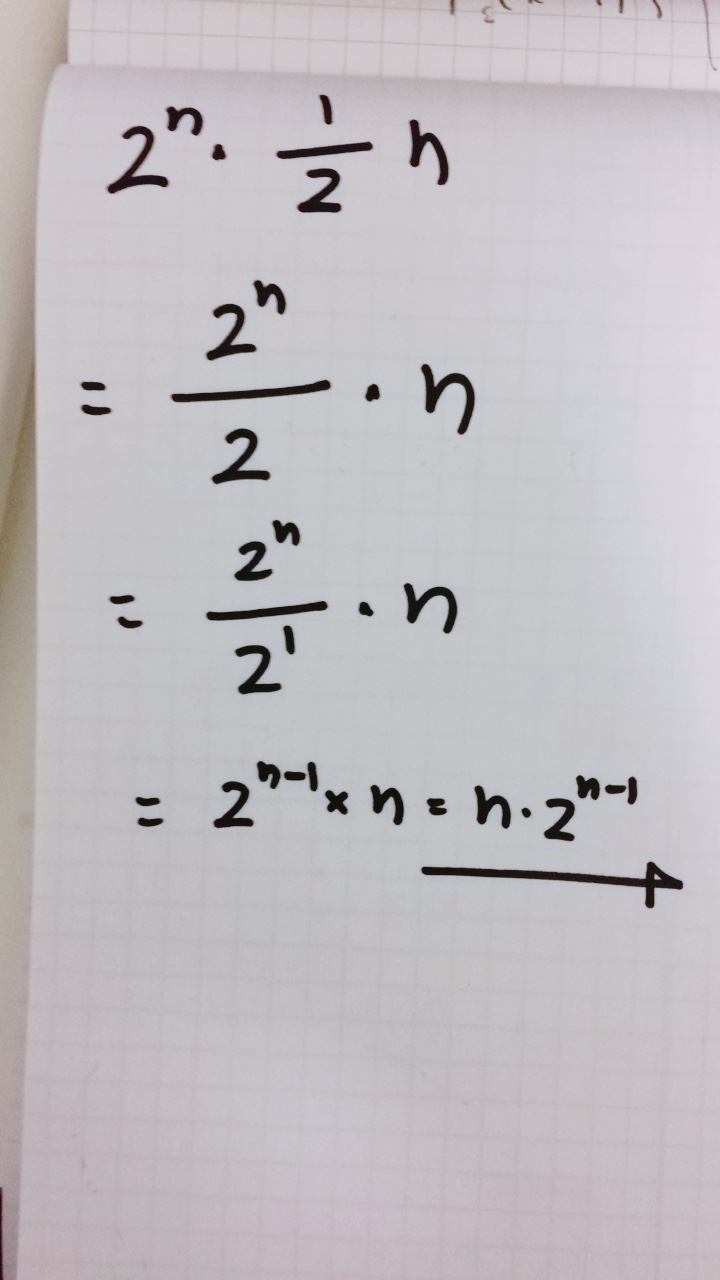 2ⁿ · 1/2 n
= 2ⁿ/2 · n
= 2ⁿ/2¹ · n
= 2ⁿ⁻¹ × n = n · 2ⁿ⁻¹